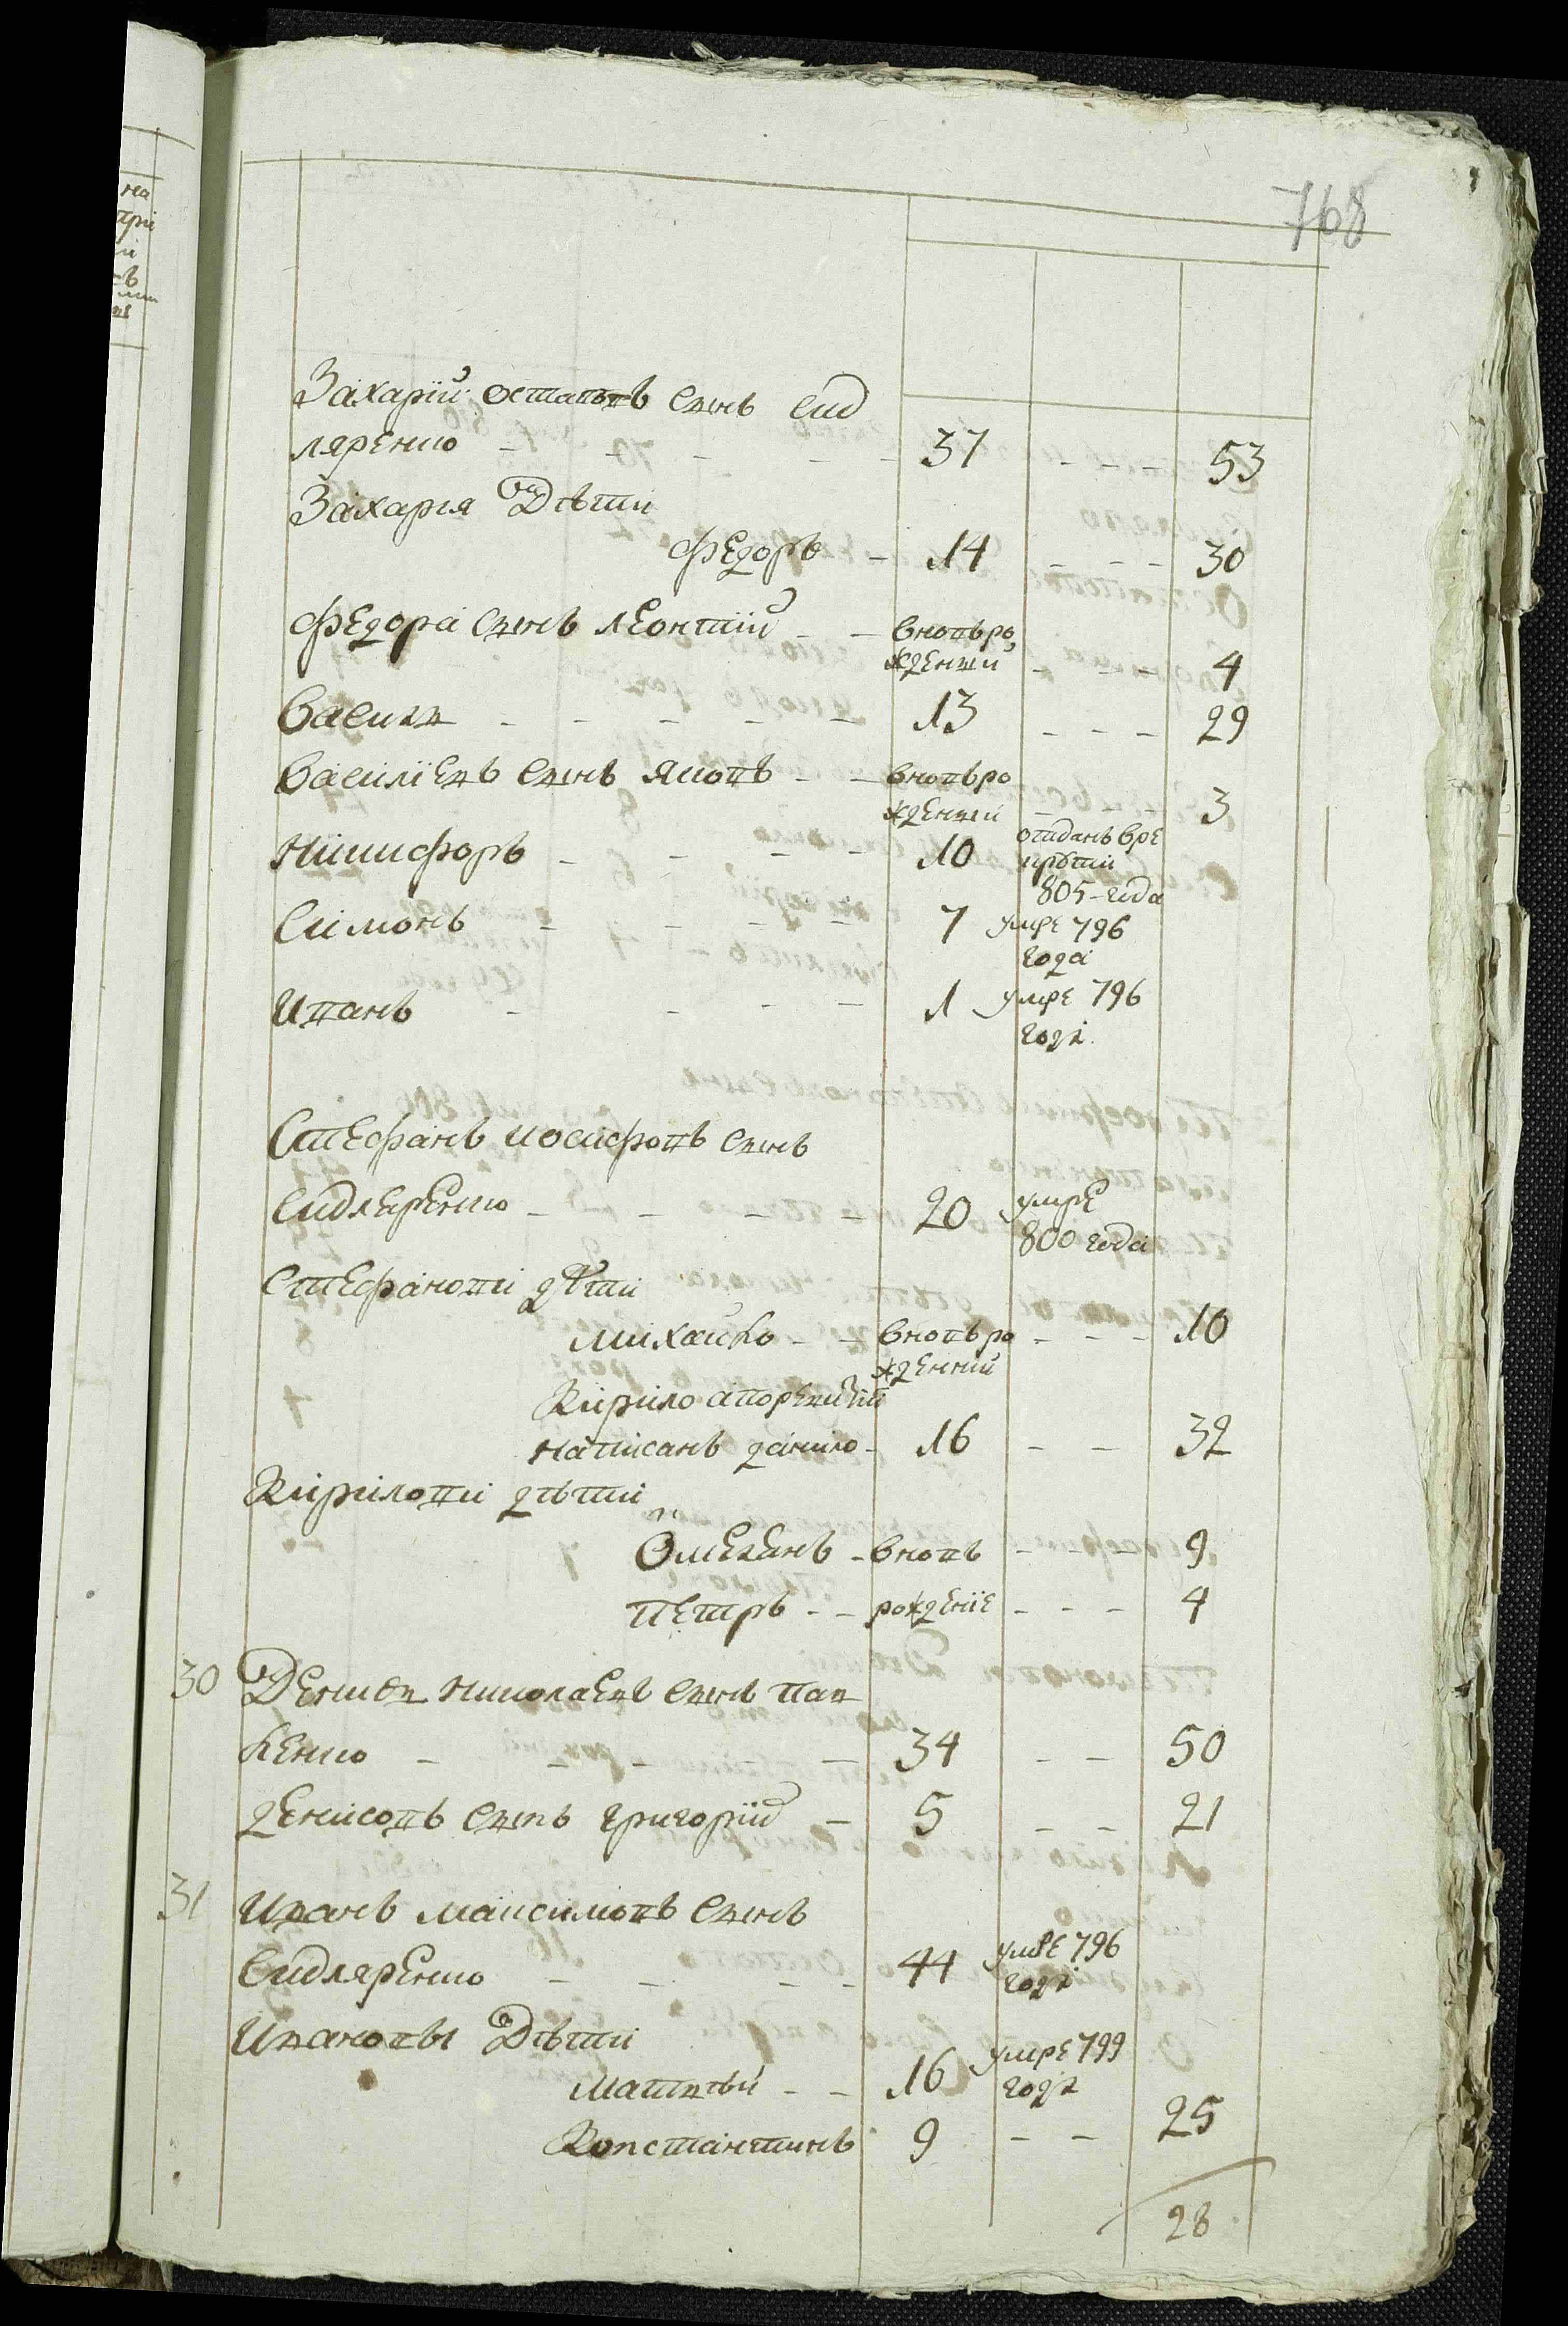 768
Захарій Остаповъ сынъ Скл
ляренко - - - - - 37 - - - 53
Захарія Дѣти
Федоръ - 14 - - - 30
Федора сынъ Леонтій - - вновьро
жденый - - - 4
Василь - - - - - 13 - - - 29
Васильевъ сынъ Яковъ - - вновьро
жденый - - - 3
Никифоръ - - - - 10 отданъ вре
круты
805-года
Симонъ - - - - 7 умре 796
года
Иванъ - - - - 1 умре 796
года
Стефанъ Иосифовъ сынъ
Скляренко - - - - - 20 умре
800 года
Стефанови дѣти
Михайло - - вновьро - - - 10
жденній
Кирило авревизіи
написанъ данило - 16 - - 32
Кирилови дѣти
Омелянъ - вновь - - - 9
Петръ - - рожденіе - - - 4
30 Денисъ Николаевъ сынъ Пав
ленко - - - - 34 - - 50
Денисовъ сынъ Григорій - 5 - - 21
31 Иванъ Максимовъ сынъ
Скляренко - - - - 44 умре 796
года
Ивановы Дѣти
Матвѣй - - 16 умре 799
года
Константинъ 9 - - 25
28